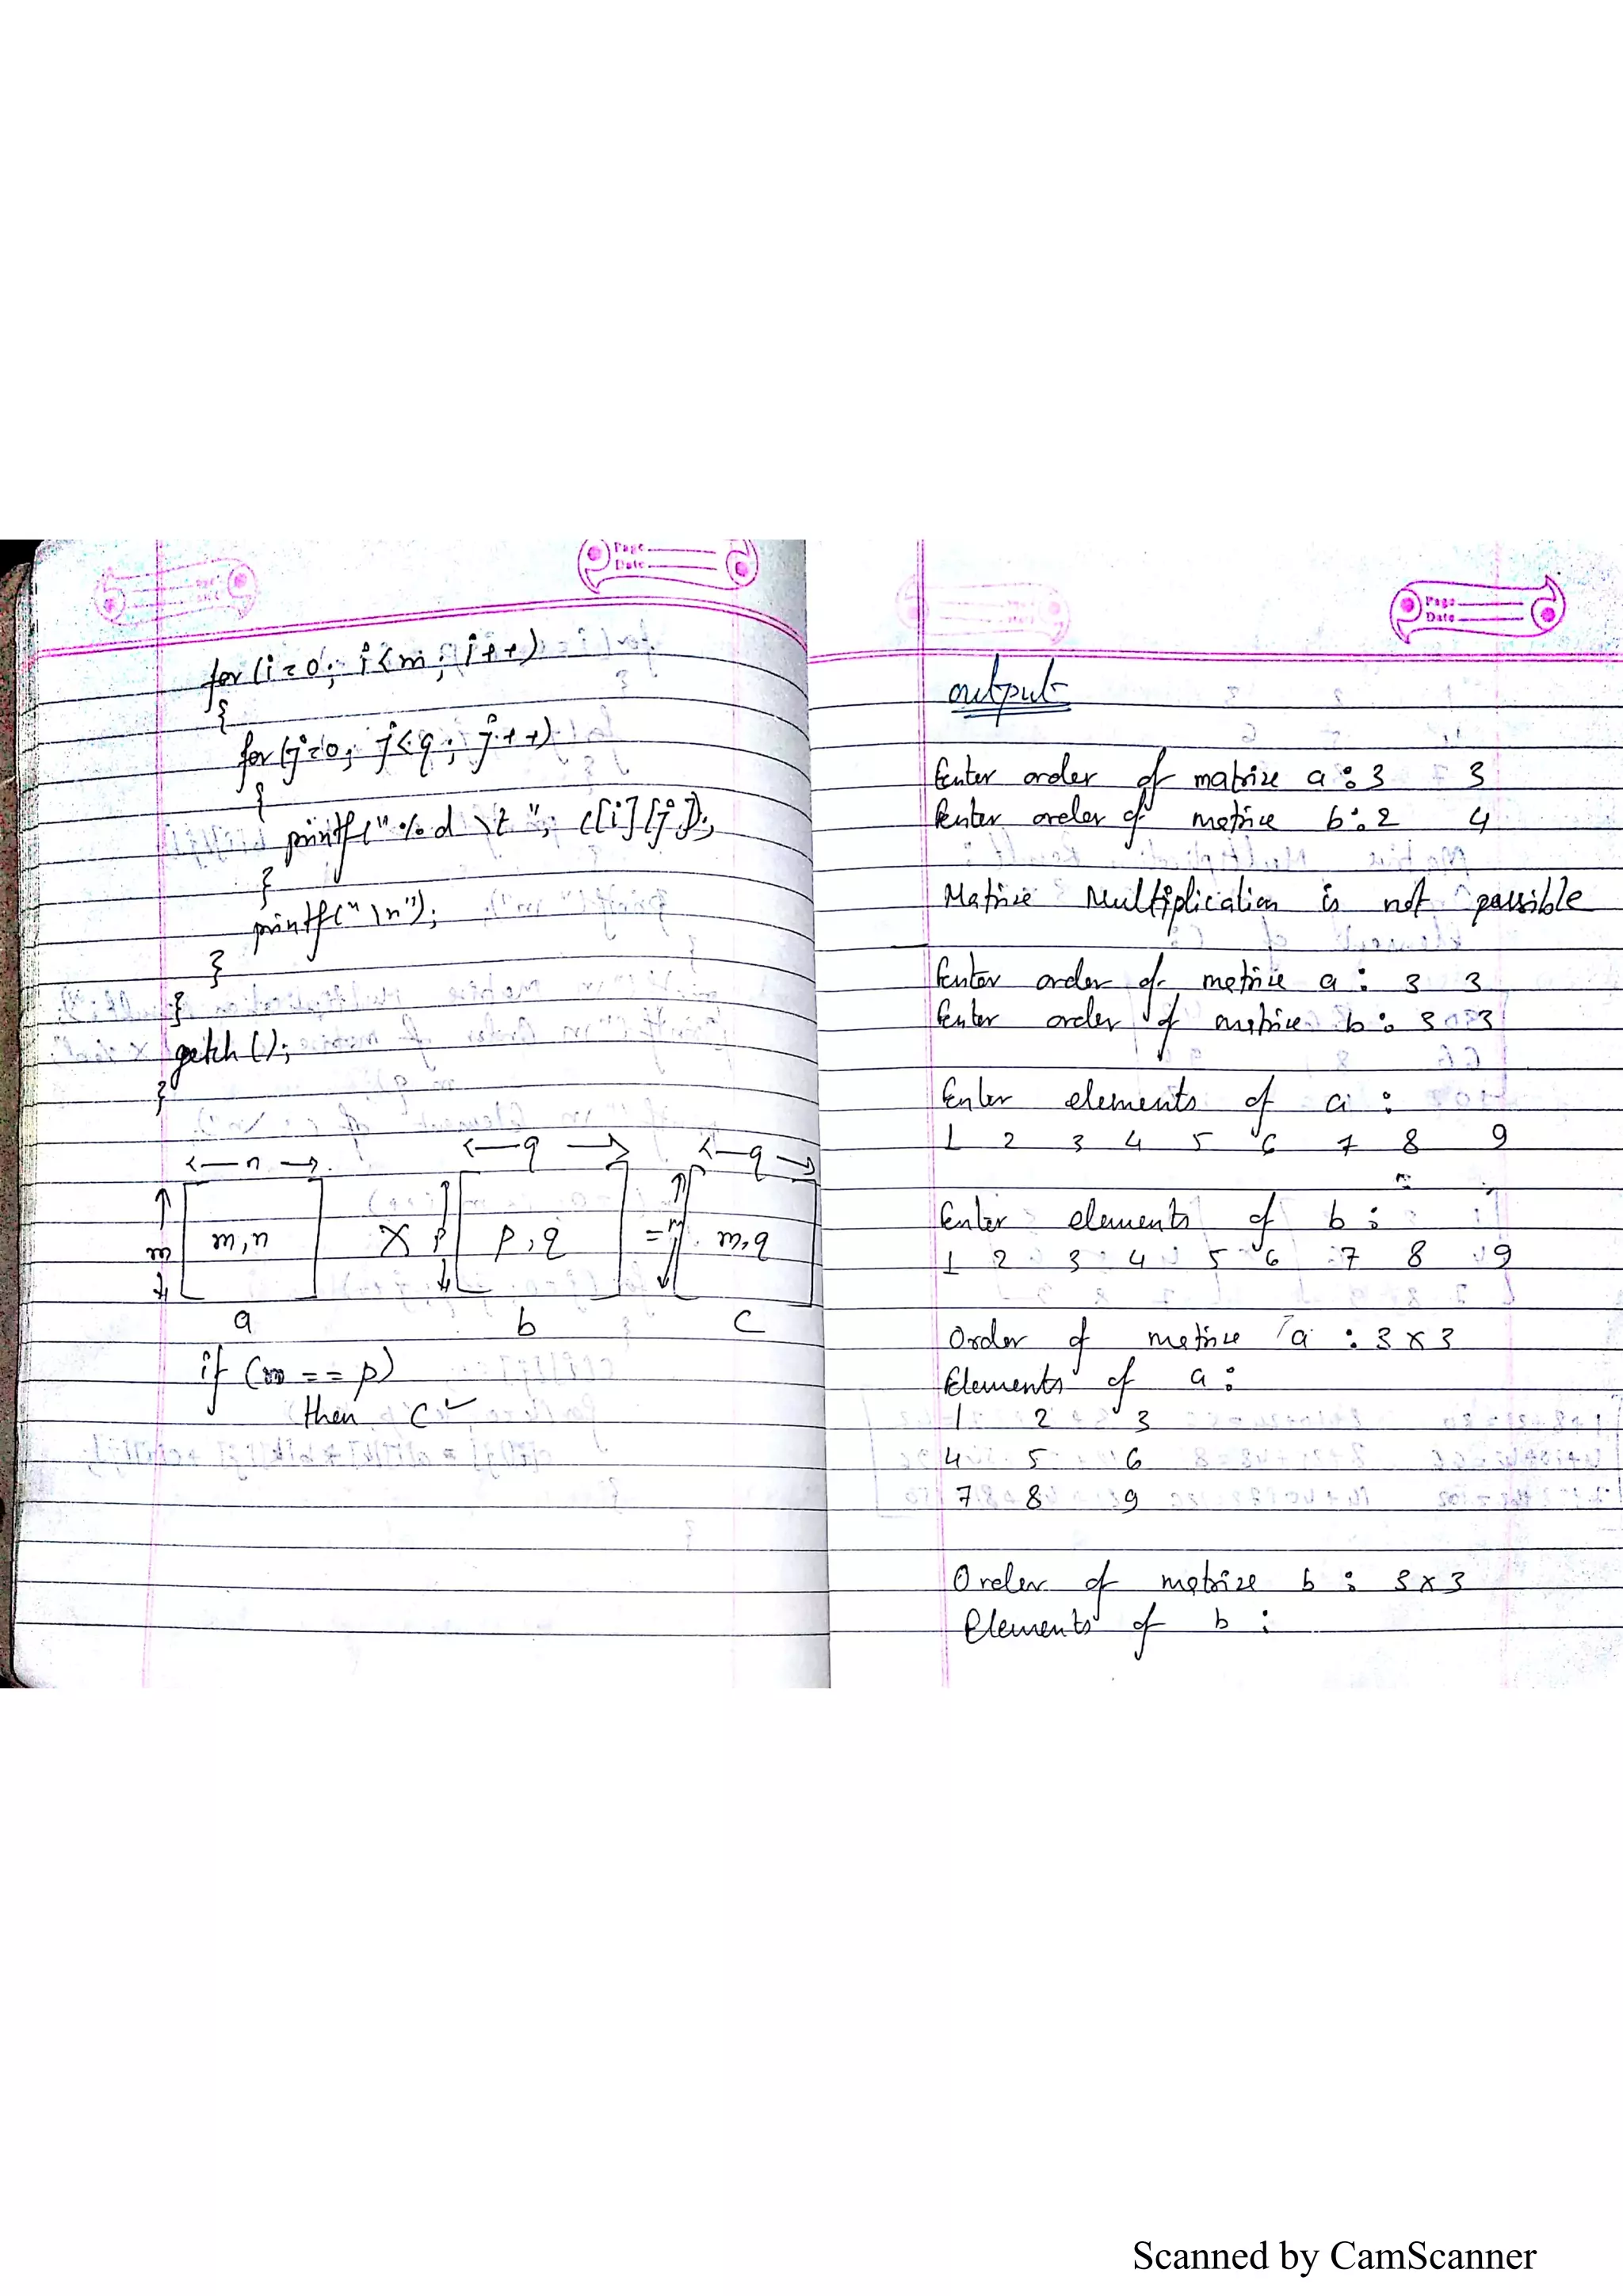 Page
Date
for(i=0; i<m; i++)
{
for(j=0; j<q; j++)
{
printf("%d \t", c[i][j]);
}
printf("\n");
}
}
getch();
}
n q q
m m,n X p p,q = m m,q
a b c
if (n == p)
then c ✓
Page
Date
output
Enter order of matrix a : 3 3
Enter order of matrix b : 2 4
Matrix Multiplication is not possible
Enter order of matrix a : 3 3
Enter order of matrix b : 3 3
Enter elements of a :
1 2 3 4 5 6 7 8 9
Enter elements of b :
1 2 3 4 5 6 7 8 9
Order of matrix a : 3 x 3
Elements of a :
1 2 3
4 5 6
7 8 9
Order of matrix b : 3 x 3
Elements of b :
Scanned by CamScanner